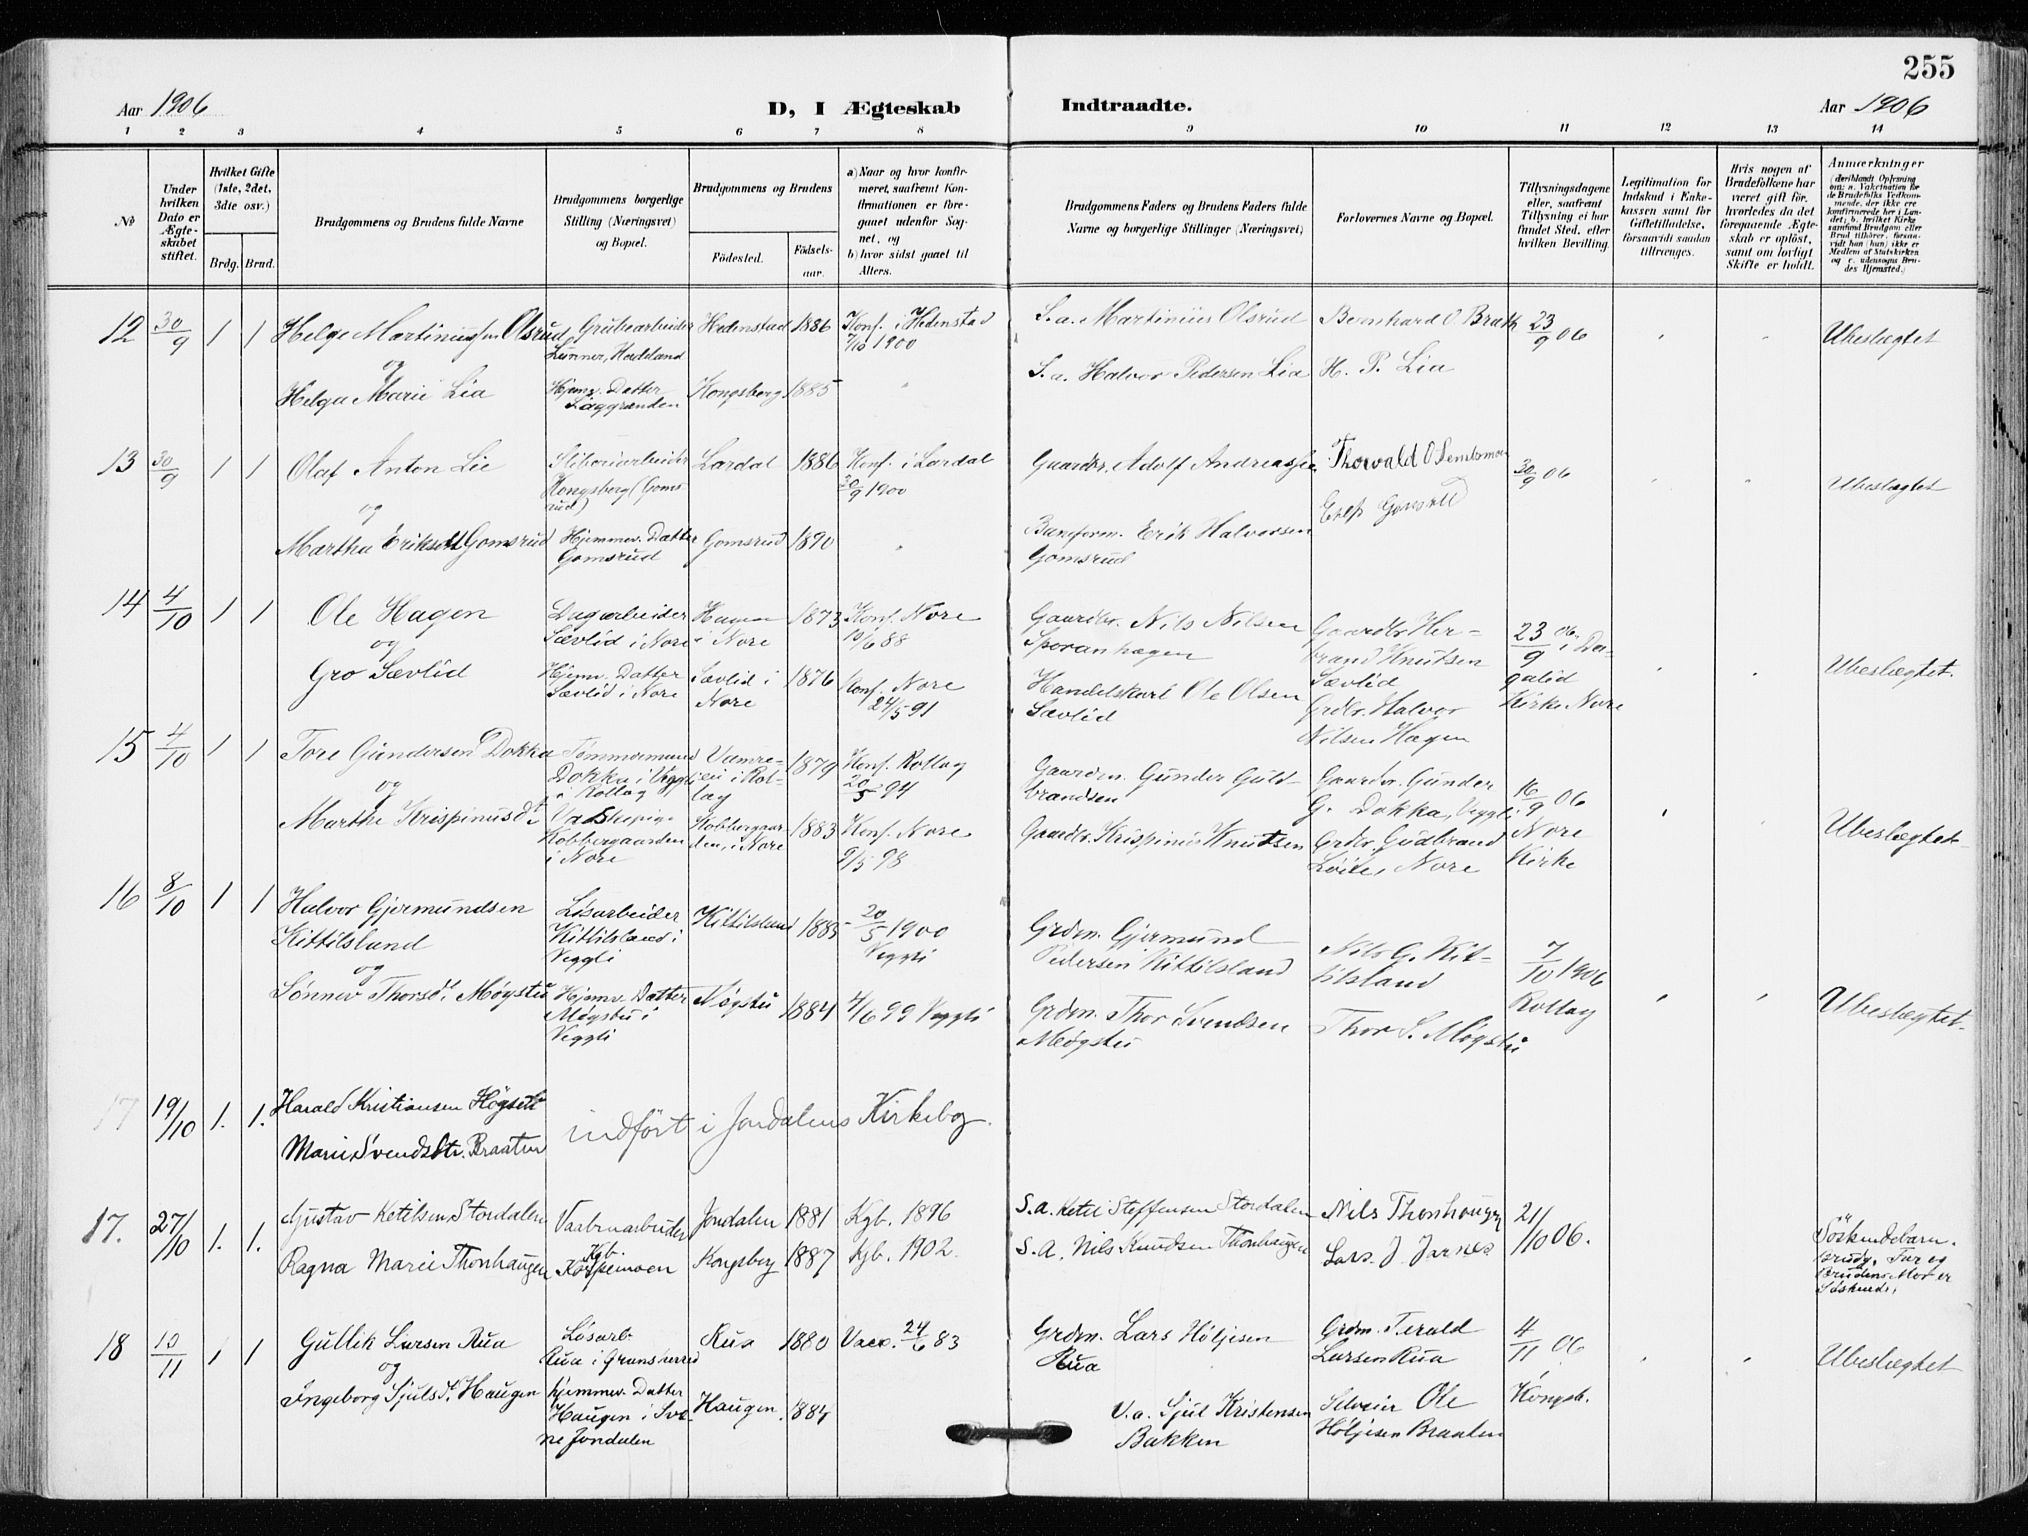 255
Aar 1906
D, I Ægteskab
Indtraadte.
Aar 1906
1 2 3 4 5 6 7 8 9 10 11 12 13 14
No
Under hvilken Dato er Ægteskabet stiftet.
Hvilket Gifte (1ste, 2det, 3die osv.)
Brdg. Brud.
Brudgommens og Brudens fulde Navne
Brudgommens borgerlige Stilling (Næringsvei) og Bopæl.
Brudgommens og Brudens
Fødested.
Fødselsaar.
a) Naar og hvor konfirmeret, saafremt Konfirmationen er foregaaet udenfor Sognet, og
b) hvor sidst gaaet til Alters.
Brudgommens Faders og Brudens Faders fulde Navne og borgerlige Stillinger (Næringsvei)
Forlovernes Navne og Bopæl.
Tillysningsdagene eller, saafremt Tillysning ei har fundet Sted, efter hvilken Bevilling.
Legitimation for Indskud i Enkekassen samt for Giftetilladelse, forsaavidt saadan tiltrænges.
Hvis nogen af Brudefolkene har været gift før, hvorledes da det foregaaende Ægteskab er opløst, samt om lovligt Skifte er holdt.
Anmærkninger
12 30/9 1 1 Helge Martiniussen Olsrud
og
Helga Marie Lia
Grubearbeider
Lunner, Hedenstad
Hjemv. Datter
Kongsberg 1885
Hedenstad 1886
Konf. i Hedenstad
1/10 1900
S. a. Martinius Olsrud
S. a. Halvor Pedersen Lia
Bernhard O. Brak
H. P. Lia
23/9 06
Ubeslægtet
13 30/9 1 1 Olaf Anton Lie
og
Martha Eriksdtt Gomsrud
Sliberiarbeider
Kongsberg (Gomsrud)
Hjemmev. Datter
Gomsrud
Lardal 1886
Gomsrud 1890
Konf. i Lardal
30/9 1900
Gaardbr. Adolf Andreas
Banform. Erik Halvorsen
Gomsrud
30/9 06
Ubeslægtet
14 4/10 1 1 Ole Hagen
og
Gro Sævlid
Dagarbeider
Sævlid i Nore
Hjemv. Datter
Sævlid i Nore
Hagen i Nore 1873
Sævlid i Nore 1876
Konf. Nore
10/6 88
Konf. Nore
24/5 91
Gaardbr. Nils Nilsen
Sporanhagen
Handelskarl Ole Olsen
Sævlid
Gaardbr. Herbrand Knutsen
Sævlid
Grdbr. Halvor
Nilsen Hagen
23/9 06 i Dagalid
Kirke Nore
Ubeslægtet.
15 4/10 1 1 Tore Gundersen Dokka
og
Marthe Krispinusdt.
Tømmermand
Dokka i Veggli
i Rollag
Vaskepige
Kobbergaarden
i Nore
1879
Kobbergaarden, i Nore 1883
Konf. Rollag
20/5 94
Konf. Nore
9/5 98
Gaardm. Gunder Guldbrandsen
Gaardbr. Krispinus Knutsen
Gaardbr. Gunder
G. Dokka, Veggli
Grdbr. Gudbrand
Løite, Nore
16/9 06
Nore
Kirke
Ubeslægtet
16 8/10 1 1 Halvor Gjermundsen
Kittilsland
og
Sønnev Thorsdt. Møgstu
Løsarbeider
Kittilsland i
Veggli
Hjemv. Datter
Møgstu i
Veggli
Kittilsland 1885
Møgstu 1884
20/5 1900
Veggli
4/6 99 Veggli
Grdm. Gjermund
Pedersen Kittilsland
Grdm. Thor Svendsen
Møgstu
Nils G. Kittilsland
Thor S. Møgstu
7/10 1906
Rollag
Ubeslægtet.
17 19/10 1. 1. Harald Kristiansen Høgset
Marie Svendsdtr. Braaten
indført i Jondalens Kirkebog.
17. 27/10 1. 1. Gustav Ketilsen Stordalen
Ragna Marie Thonhaugen
Vaabenarbeider
Kgb.
Jondalen 1881 Kgb. 1896
Kongsberg 1887 Kgb. 1902.
S. a. Ketil Steffensen Stordalen
S. A. Nils Knudsen Thonhaugen
Nils Thonhaugen
Lars J. Jarnes
21/10 06.
Söskendebarn.
Brudg. Far og
Brudens Mor er
Söskende.
18 10/11 1 1 Gullik Larsen Rua
og
Ingeborg Sjulsdt. Haugen
Løsarb.
Rua i Gransherred
hjemmev. Datter
Haugen i Svene Jondalen
Rua 1880 Vacc. 24/6 83
Haugen 1884
Grdm. Lars Høljesen
Rua
U. a. Sjul Kristensen
Bakken
Grdm. Terald
Larsen Rua
Selveier Ole
Høljesen Braaten
4/11 06
Kongsb.
Ubeslægtet